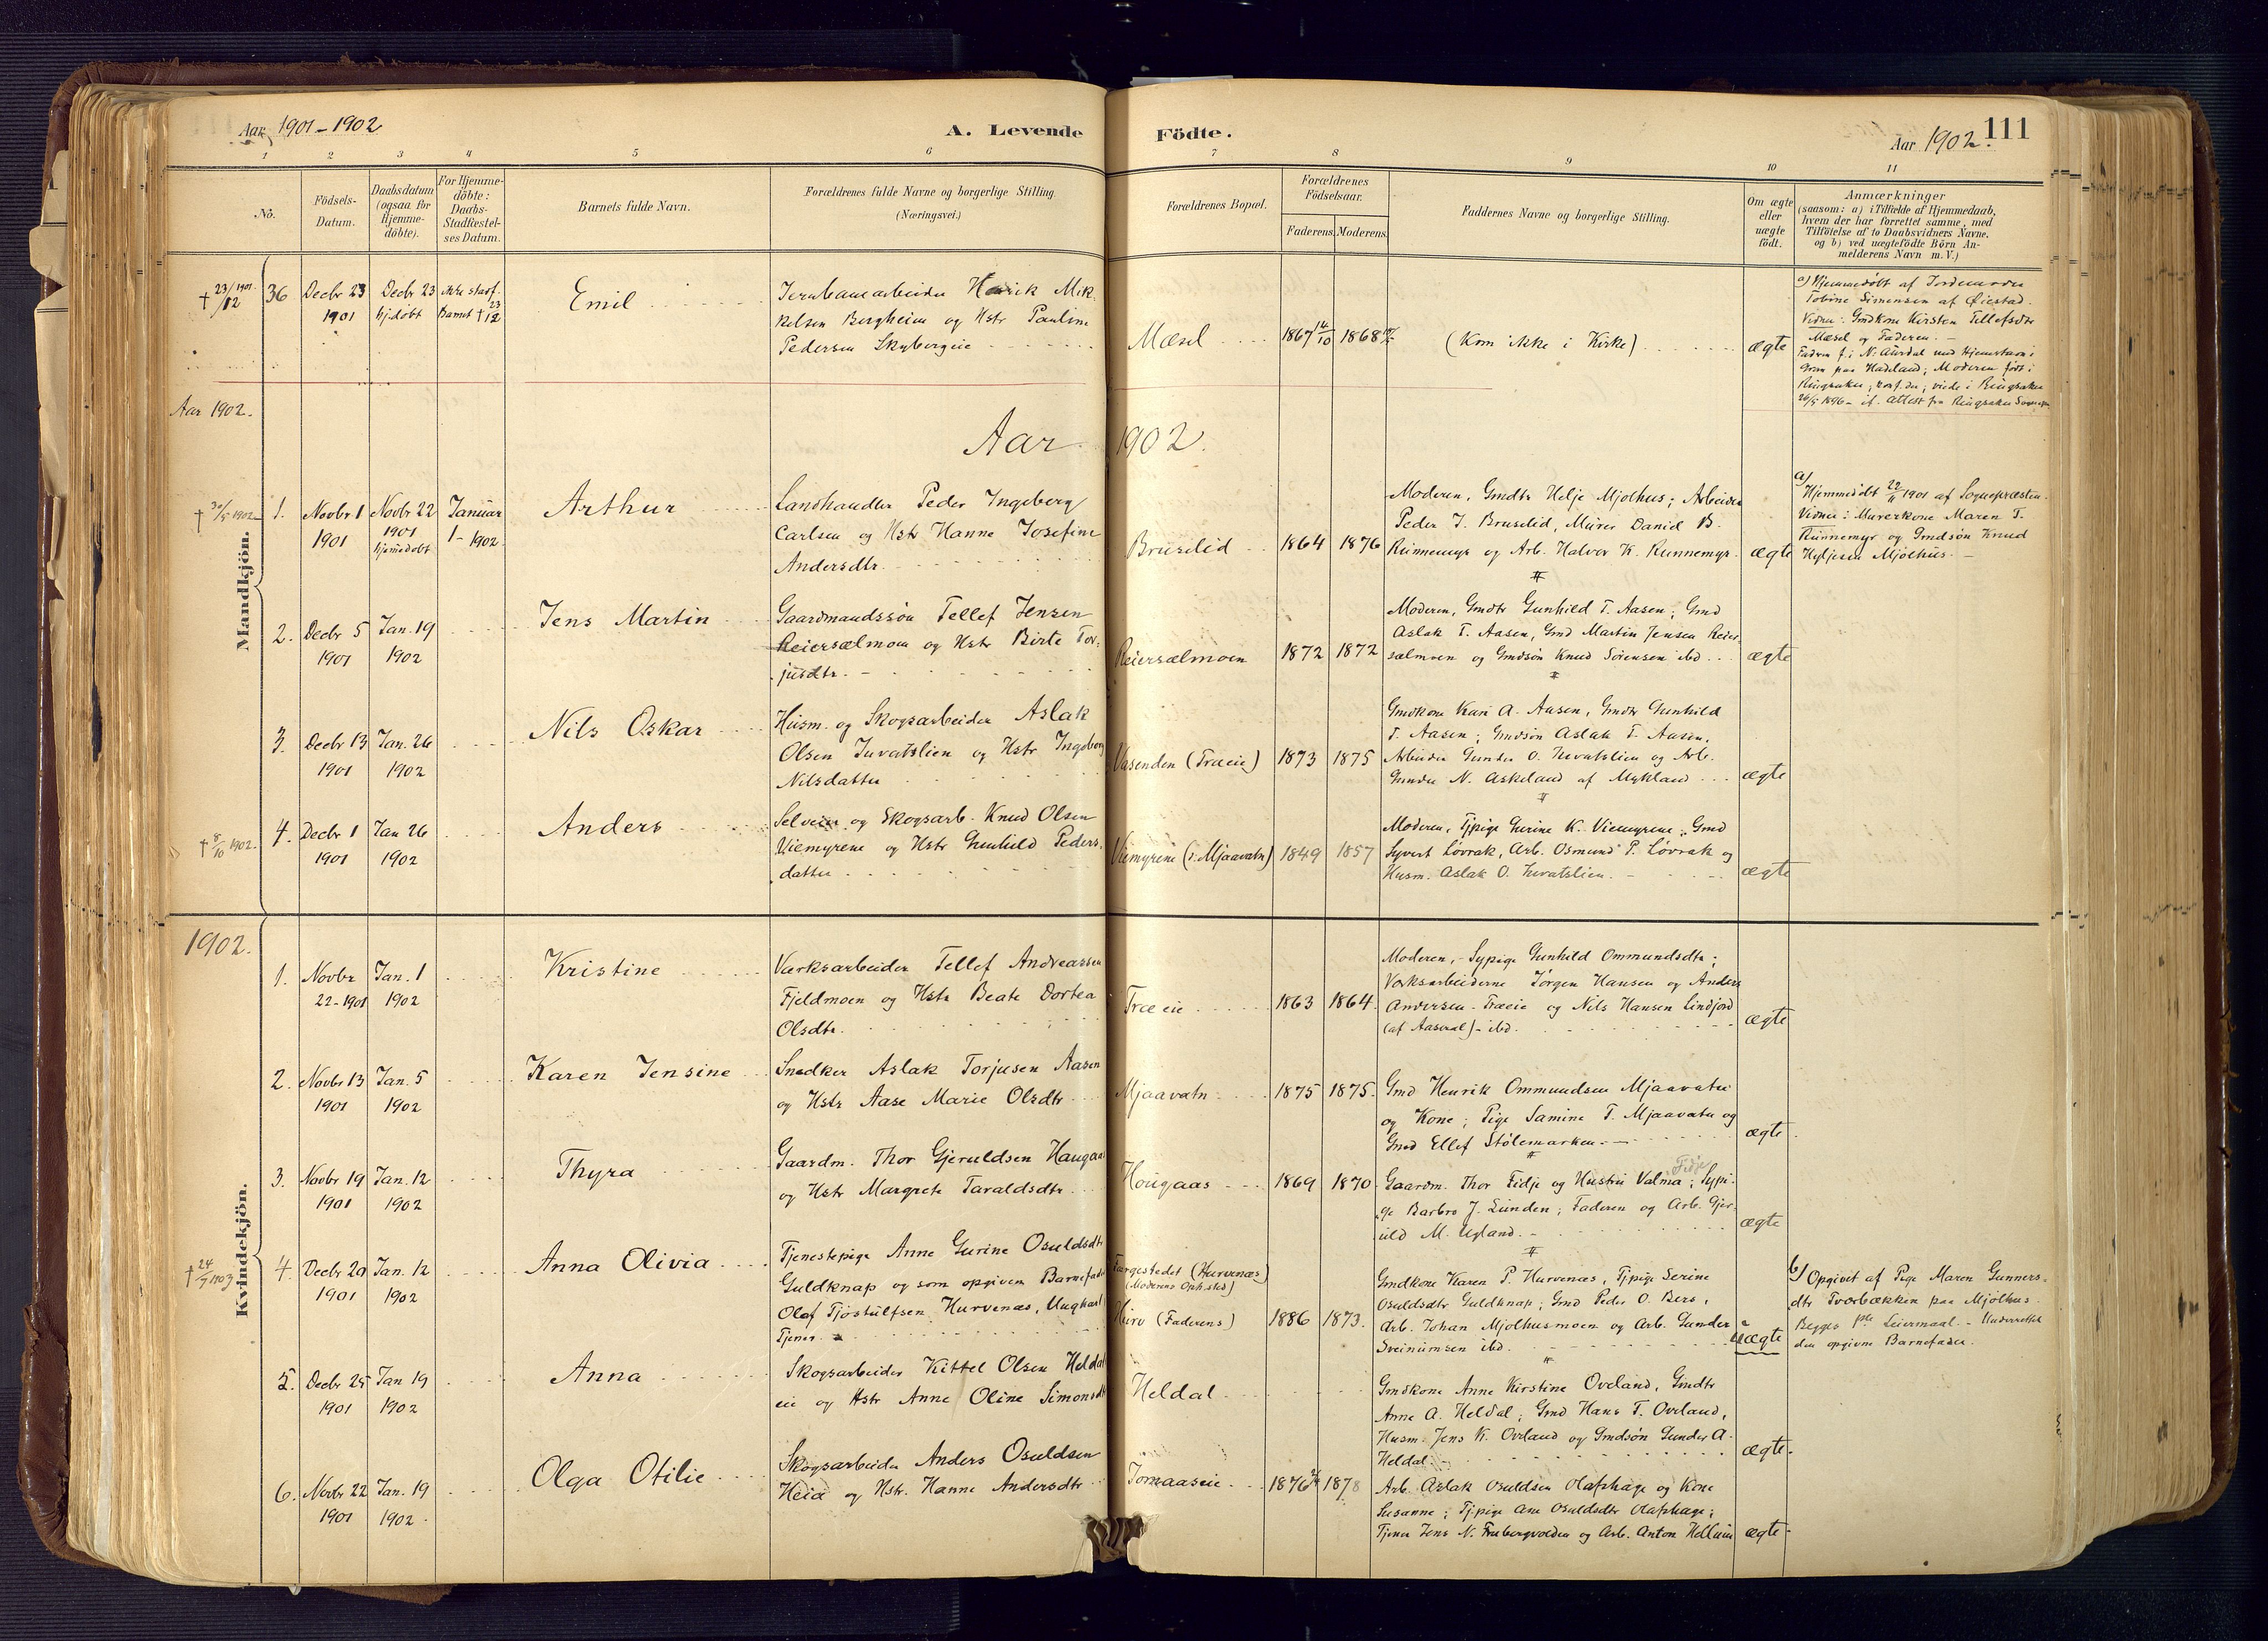 Aar 1901 - 1902
A. Levende Födte.
Aar 1902.
111
1 2 3 4 5 6 7 8 9 10 11
No.
Födsels-
Datum.
Daabsdatum
(ogsaa for
Hjemme-
döbte).
For Hjemme-
döbte:
Daabs-
Stadfæstel-
ses Datum.
Barnets fulde Navn.
Forældrenes fulde Navne og borgerlige Stilling.
(Næringsvei.)
Forældrenes Bopæl.
Forældrenes
Födselsaar.
Faderens. Moderens.
Faddernes Navne og borgerlige Stilling.
Om ægte
eller
uægte
födt.
Anmærkninger
(saasom: a) i Tilfælde af Hjemmedaab,
hvem der har forrettet samme, med
Tilföielse af to Daabsvidners Navne.
og b) ved uægtefödte Börn An-
melderens Navn m. V.)
† 23/12 1901.
36
Decbr 23
1901
Decbr 23
hj.døbt
Ikke stadf.
Barnet † 23/12
Emil
Jernbanearbeider Henrik Mik-
kelsen Bergheim og Hstr Pauline
Pedersen Skybergeie
Mæsel
1867 14/10
1868
(Kom ikke i Kirke)
ægte
a) Hjemmedøbt af Jordemoder
Tobine Simensen af Øiestad.
Vidner: Gmdkone Kirsten Tellefsdtr
Mæsel og Faderen.
Faderen f. i N. Aurdal med Hjemstavn i
Gran paa Hadeland; Moderen født i
Ringsaker; konf. do; viede i Ringsaker
26/5 1896 - if. Attest fra Ringsaker
Aar 1902.
Aar 1902.
Mandkjön.
† 30/5 1902
1.
Novbr 1
1901
Novbr 22
1901
hjemedøbt
Januar
1 - 1902.
Arthur
Landhandler Peder Ingeberg
Carlsen og Hstr Hanne Josefine
Andersdtr.
Bruselid
1864
1876
Moderen, Gmdtr Helje Mjølhus; Arbeider
Peder J. Bruselid, Murer Daniel B.
Runnemyr og Arb. Halvor K. Runnemyr.
ægte
a)
Hjemmedøbt 22/11 1901 af Sognepræsten.
Vidner: Murerkone Maren T.
Runnemyr og Gmdsøn Knud
Hyljesen Mjølhus.
2.
Decbr 5
1901
Jan. 19
1902
Jens Martin
Gaardmandssøn Tellef Jensen
Reiersælmoen og Hstr Birte Tor-
jusdtr.
Reiersælmoen
1872
1872
Moderen, Gmdtr Gunhild T. Aasen; Gmd
Aslak T. Aasen, Gmd Martin Jensen Reier-
sælmoen og Gmdsøn Knud Sørensen ibd
ægte
3.
Decbr 13
1901
Jan. 26
1902
Nils Oskar
Husm. og Skogsarbeider Aslak
Olsen Juvatslien og Hstr Ingeborg
Nilsdatter
Vasenden (Træeie)
1873
1875
Gmdkone Kari A. Aasen, Gmdtr Gunhild
T. Aasen; Gmdsøn Aslak T. Aasen,
Arbeider Gunder O. Juvatslien og Arb.
Gunder N. Askeland af Mykland
ægte
† 8/10 1902.
4.
Decbr 1
1901
Jan 26
1902
Anders
Selveier og Skogsarb. Knud Olsen
Viemyrene og Hstr Gunhild Peders-
datter
Viemyrene (i Mjaavatn)
1849
1857
Moderen, Tjpige Gurine K. Viemyrene; Gmd
Syvert Løvrak, Arb. Osmund P. Løvrak og
Husm. Aslak O. Juvatslien.
ægte
1902.
Kvindekjön.
1.
Novbr
22-1901
Jan. 1
1902
Kristine
Værksarbeider Tellef Andreassen
Fjeldmoen og Hstr Beate Dortea
Olsdtr.
Træeie
1863
1864.
Moderen, - Sypige Gunhild Ommundsdtr;
Værksarbeiderne Jørgen Hansen og Anders
Andersen - Træeie og Nils Hansen Lindjord
(af Aaseral) - ibd.
ægte
2.
Novbr 13
1901
Jan. 5
1902
Karen Jensine
Snedker Aslak Torjusen Aasen
og Hstr Aase Marie Olsdtr
Mjaavatn
1875
1875.
Gmd Henrik Ommundsen Mjaavatn
og Kone; Pige Samine T. Mjaavatn og
Gmd Ellef Stølemarken.
ægte
3.
Novbr 19
1901
Jan. 12
1902
Thyra
Gaardm. Thor Gjeruldsen Haugaas
og Hstr Margrete Taraldsdtr
Hougaas
1869
1870
Fidje
Gaardm. Thor Fidje og Hustru Valma; Sypi-
ge Barbro J. Lunden; Faderen og Arb. Gjer-
uld M. Ugland.
ægte
4.
Decbr 20
1901
Jan. 12
1902
Anna Olivia
Tjenestepige Anne Gurine Osuldsdtr
Guldknap og som opgiven Barnefader
Olaf Tjøstulfsen Hurvenæs, Ungkarl
Tjener
(Hurvenæs)
(Moderens Oph.sted)
Hurv (Faderens)
1886
1873.
Gmdkone Karen P. Hurvenæs, Tjpige Serine
Osuldsdtr Guldknap; Gmd Peder O. Bers,
Arb. Johan Mjølhusmoen og Arb. Gunder
Sveinumsen ibd.
uægte
b) Opgivet af Pige Maren Gunners-
dtr Tvorbækken paa Mjølhus.
Begges Leiermaal. - Underrettet
den opgivne Barnefader.
5.
Decbr 25
1901
Jan 19
1902
Anna
Skogsarbeider Kittel Olsen Heldal
eie og Hstr Anne Oline Simonsdtr
Heldal
Gmdkone Anne Kirstine Oveland, Gmdtr
Anne A. Heldal; Gmd Hans T. Oveland,
Husm. Jens K. Oveland og Gmdsøn Gunder A.
Heldal.
ægte.
6.
Novbr 22
1901
Jan. 19
1902.
Olga Otilie
Skogsarbeider Anders Osuldsen
Heia og Hstr. Hanne Andersdtr
Tomaaseie
1876
1878
Arb. Aslak Osuldsen Olafshage og Kone
Susanne; Tj.pige Ane Osuldsdtr Olafshage;
Tjener Jens N. og Arb. Anton
ægte.